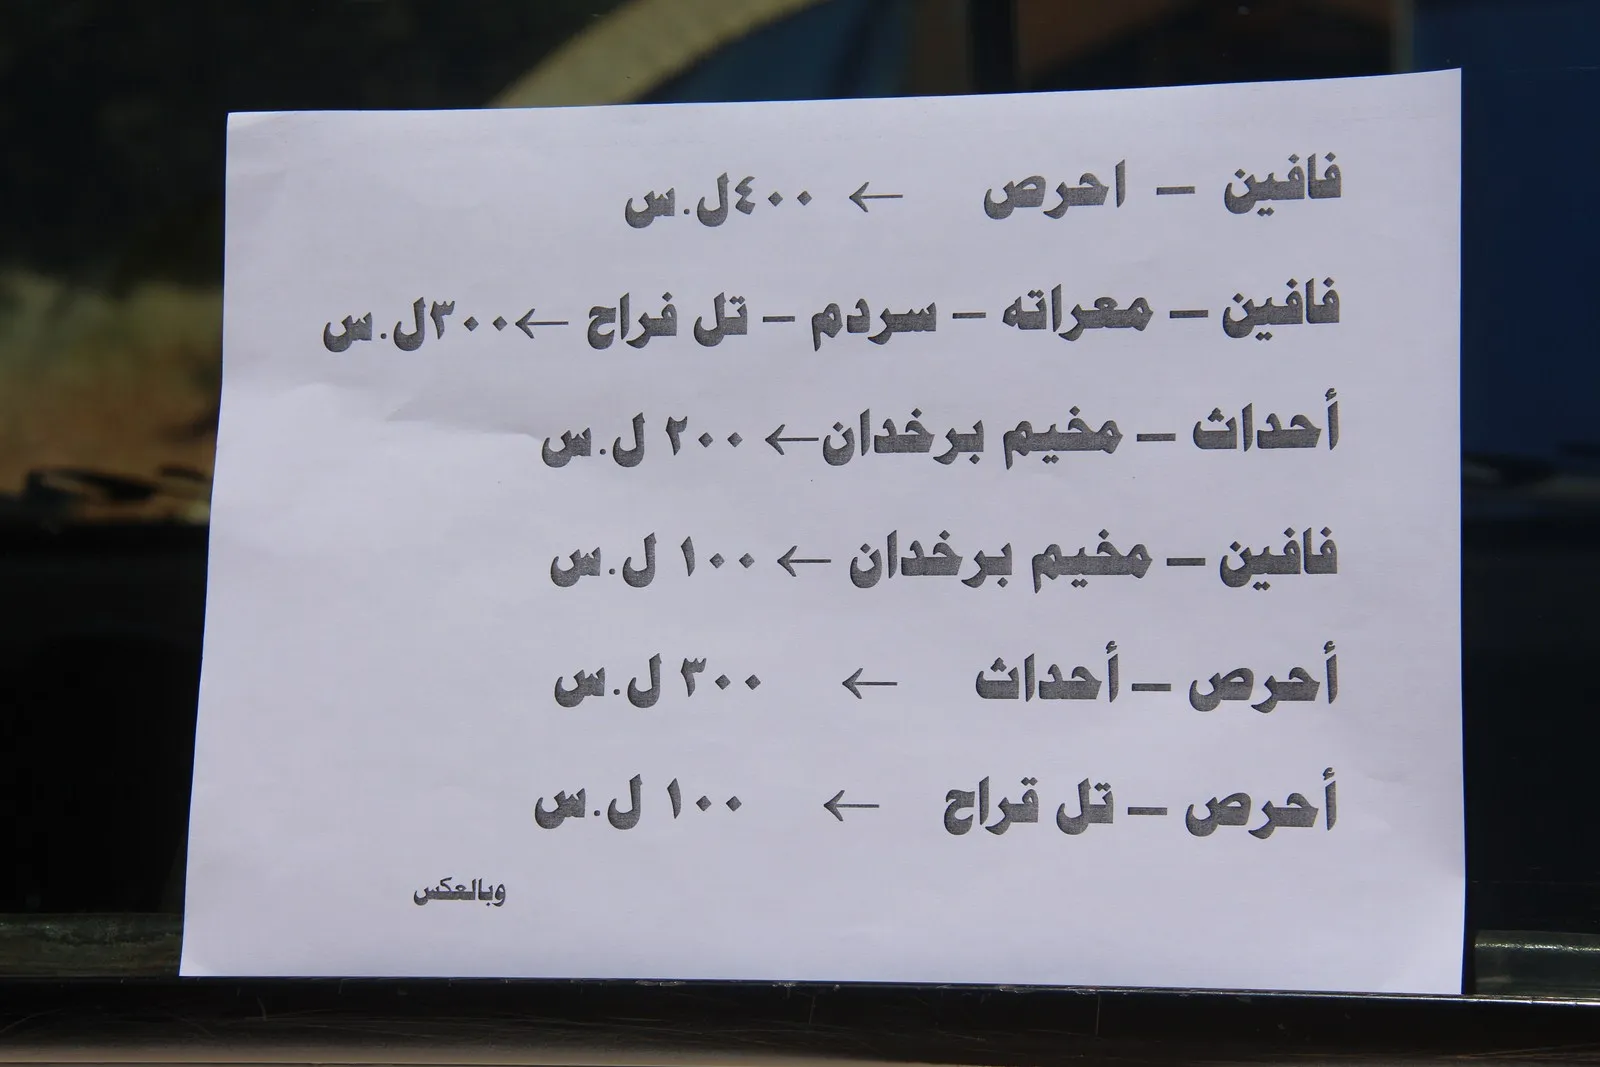 فافين – احرص ← ٤٠٠ل.س
فافين – معراته – سردم – تل فراح ←٣٠٠ل.س
أحداث – مخيم برخدان← ٢٠٠ ل.س
فافين – مخيم برخدان ← ١٠٠ ل.س
أحرص – أحداث ← ٣٠٠ ل.س
أحرص – تل قراح ← ١٠٠ ل.س
وبالعكس